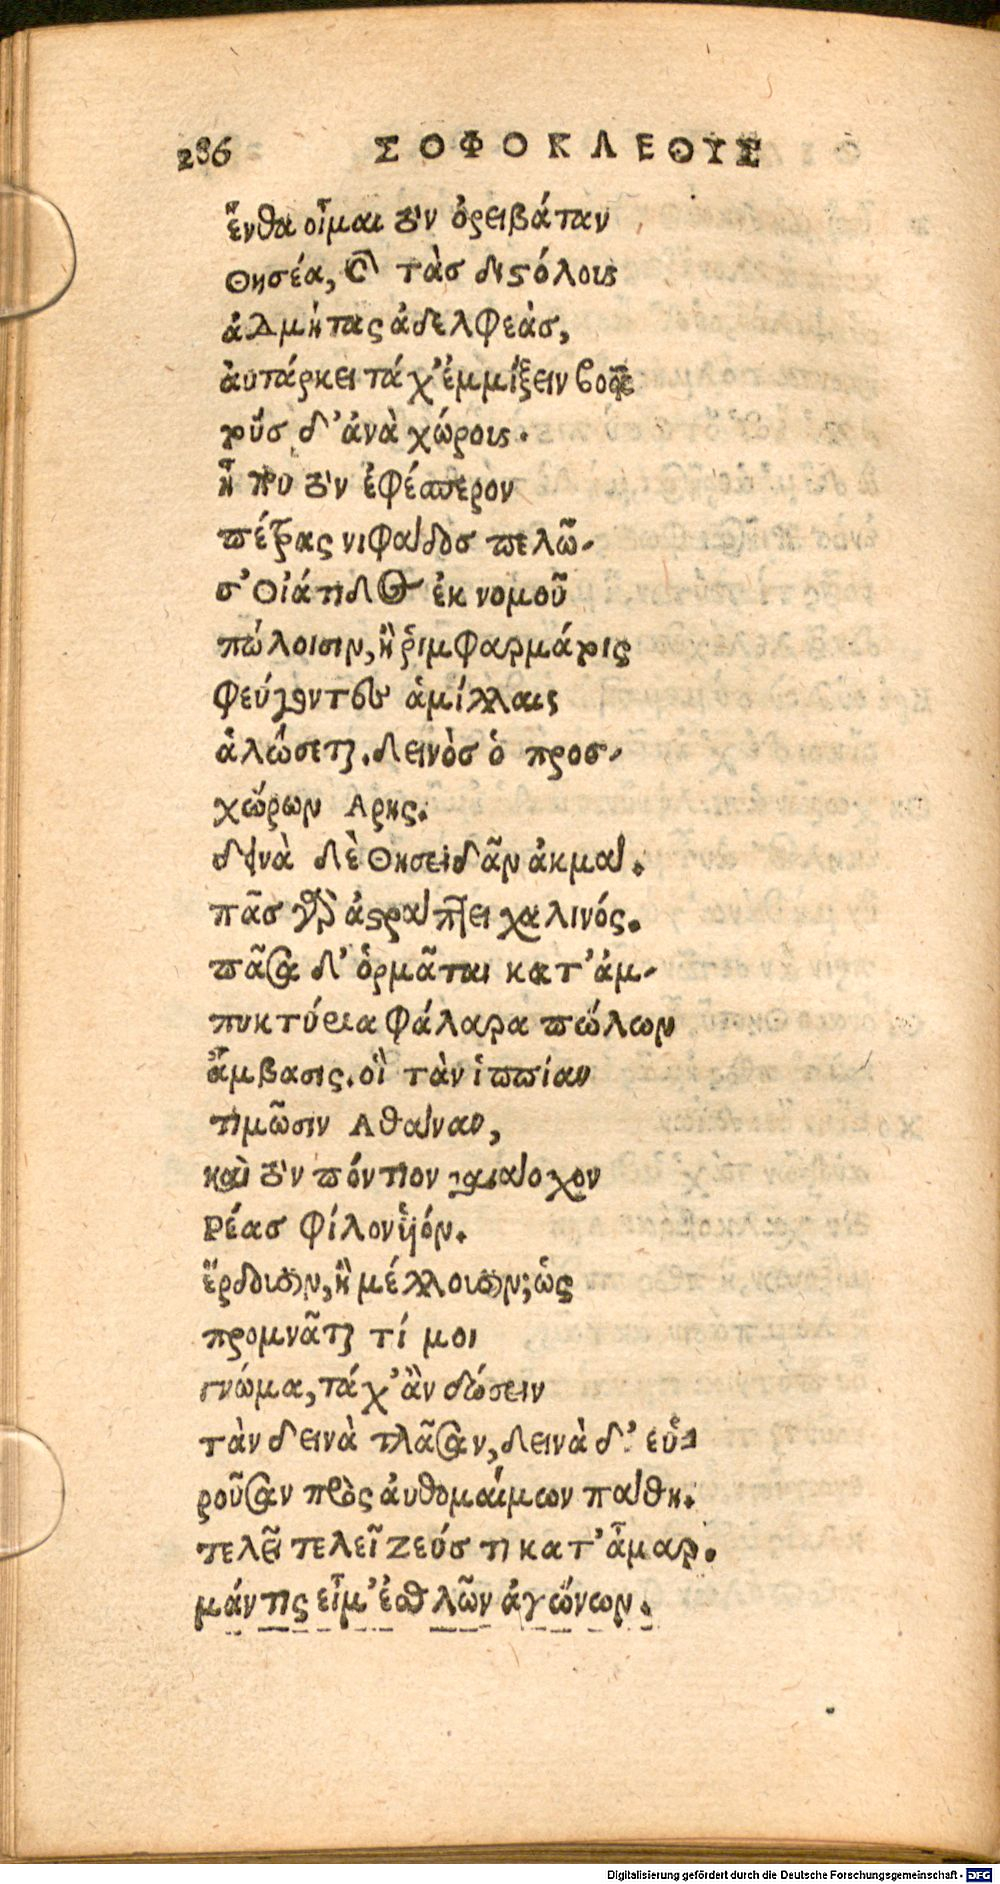 286 ΣΟΦΟΚΛΕΟΥΣ
ἔνθα οἶμαι τὸν ὀρειβάταν
Θησέα, καὶ τὰσ διστόλους
ἀδμήτας ἀδελφεὰσ,
ἀυτάρκει τάχ' ἐμμίξειν βοᾷ
τούσδ' ἀνὰ χώρους.
ἦ που τὸν ἐφέσπερον
πέτρας νιφάδοσ πελῶ-
σ' Οἰάτιδος ἐκ νομοῦ
πώλοισιν, ἢ ῥιμφαρμάτοις
φεύγοντες ἁμίλλαις
ἁλώσεται. δεινὸσ ὁ προσ-
χώρων Αρης.
δεινὰ δὲ Θησειδᾶν ἀκμαί.
πᾶσ γὰρ ἀστράπτει χαλινός.
πᾶσα δ' ὁρμᾶται κατ' ἀμ-
πυκτύρια φάλαρα πώλων
ἄμβασις. οἳ τὰν ἱππίαν
τιμῶσιν Αθαίναν,
καὶ τὸν πόντιον γαιαίοχον
Ρέασ φίλον ὑιόν.
ἔρδουσιν, ἢ μέλλουσιν; ὡς
προμνᾶται τί μοι
γνώμα, τάχ' ἂν δώσειν
τὰν δεινὰ τλᾶσαν, δεινὰ δ' εὑ-
ροῦσαν πρὸς ἀυθομαίμων πάθη.
τελεῖ τελεῖ Ζεύσ τι κατ' ἦμαρ.
μάντις εἶμ' ἐσθλῶν ἀγώνων.
Digitalisierung gefördert durch die Deutsche Forschungsgemeinschaft - DFG